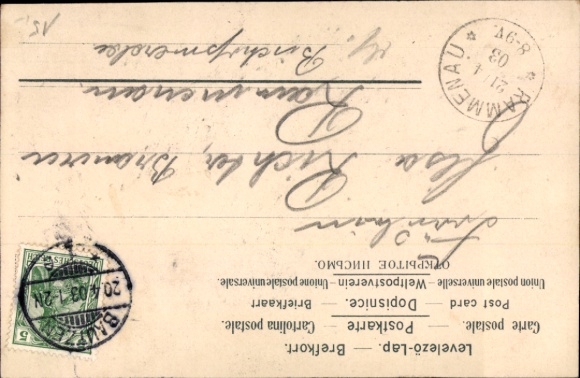 Levelező-Lap. — Brefkort.
Carte postale. — Postkarte — Cartolina postale.
Post card — Dopisnice. — Briefkaart
Union postale universelle — Weltpostverein — Unione postale universale.
ОТКРЫТОЕ ПИСЬМО.
BAUTZEN
20.4.03.1-2N
5
Fräulein
Ilsa Richter, Brauerei
Rammenau
Bischofswerda
RAMMENAU
21.4.
03
6-9V.
15,-